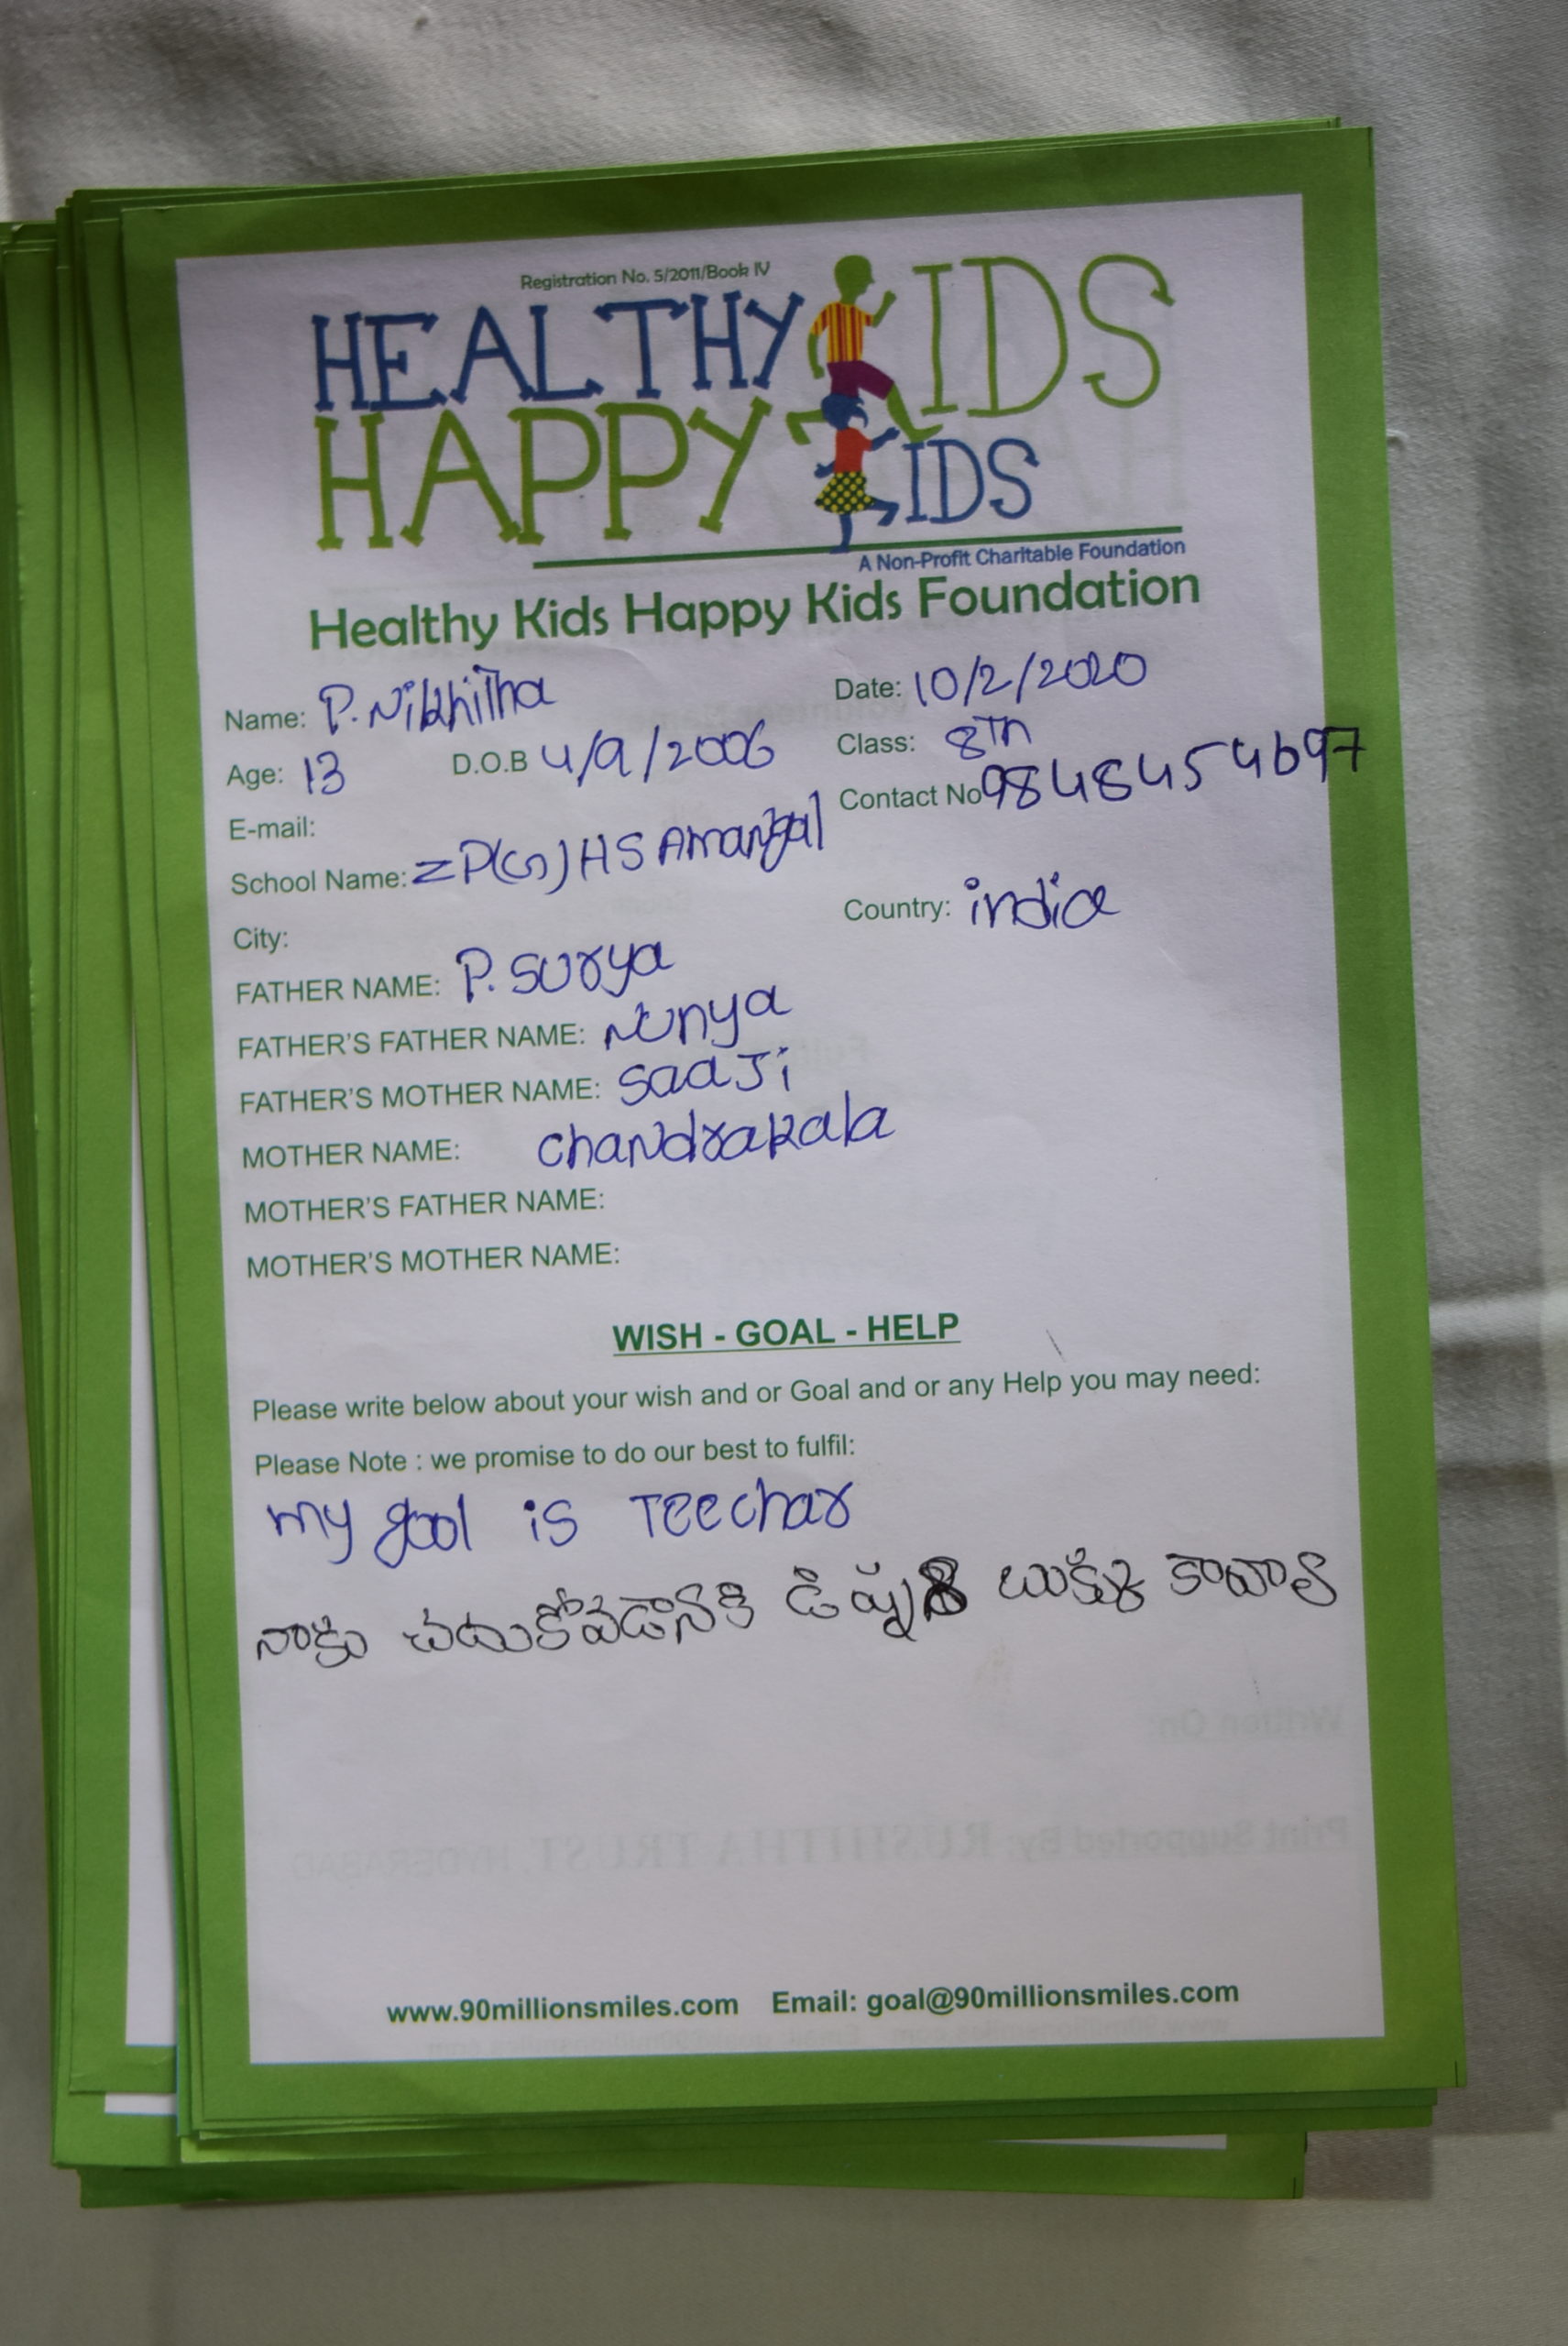 Registration No. 5/2011/Book IV
HEALTHY KIDS
HAPPY KIDS
A Non-Profit Charitable Foundation
Healthy Kids Happy Kids Foundation
Name: P. Nikhitha Date: 10/2/2020
Age: 13 D.O.B 4/9/2006 Class: 8Th
E-mail: Contact No 9848454697
School Name: ZP(G)HS Amangal
City: Country: india
FATHER NAME: P. surya
FATHER'S FATHER NAME: Nunya
FATHER'S MOTHER NAME: saaJi
MOTHER NAME: chandrakala
MOTHER'S FATHER NAME:
MOTHER'S MOTHER NAME:
WISH - GOAL - HELP
Please write below about your wish and or Goal and or any Help you may need:
Please Note : we promise to do our best to fulfil:
my gool is Teechar
నాకు చదుకోవడానికి బుక్కు కావాలి
Written On:
Print Supported By: RUSHITHA TRUST, HYDERABAD
www.90millionsmiles.com Email: goal@90millionsmiles.com